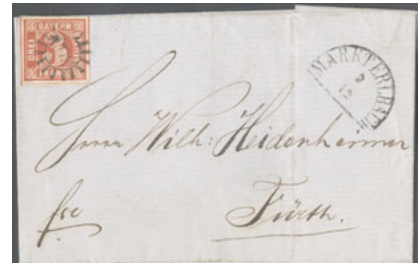 BAYERN
DREI
MARKTERLBACH
5
12
Herrn Wilh: Heidenheimer
fco
Fürth.